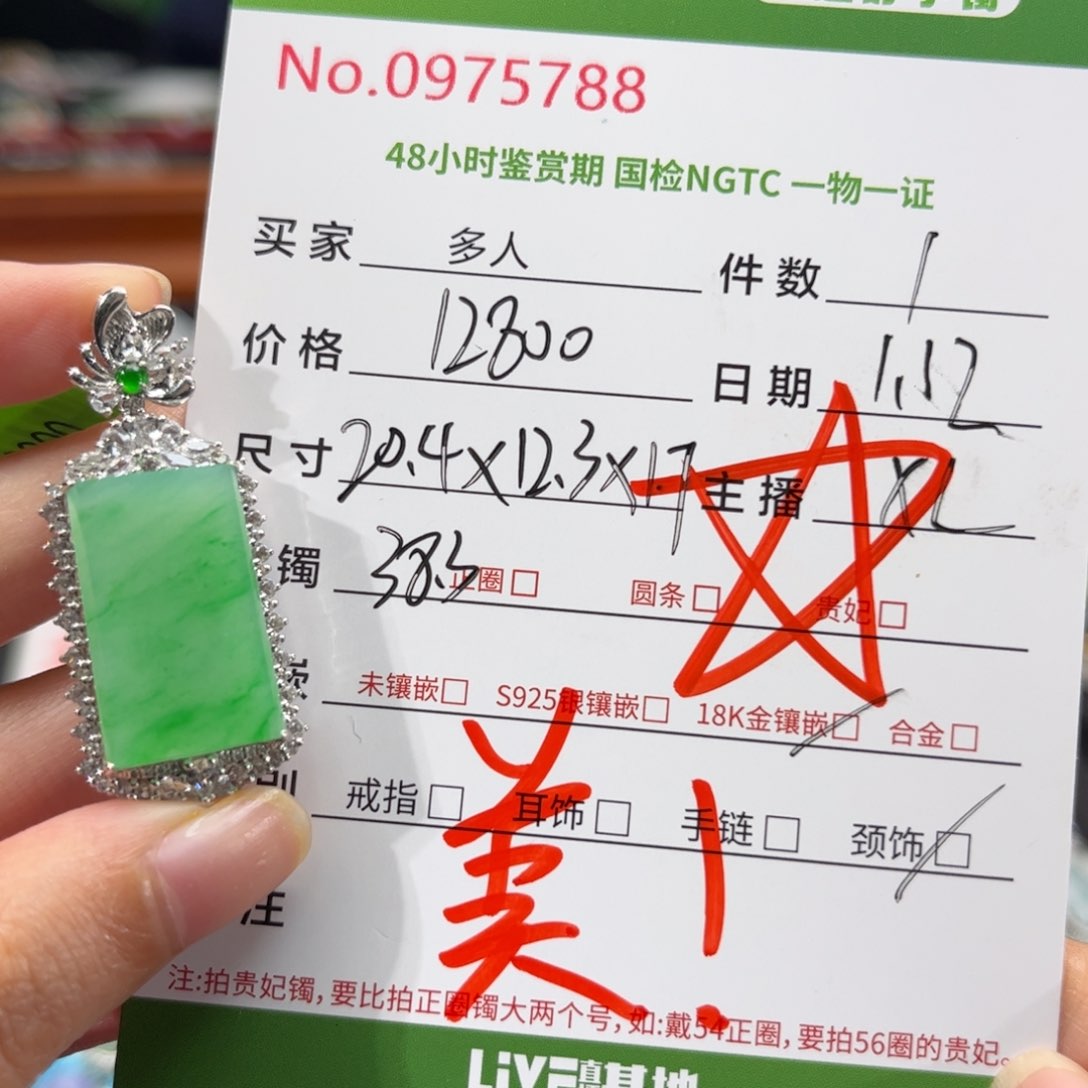 No.0975788
48小时鉴赏期 国检NGTC 一物一证
买家 多人 件数 1
价格 12800 日期 1.12
尺寸 20.4X12.3X1.7 主播 XL
镯 38.5 正圈□ 圆条□ 贵妃□
款 未镶嵌□ S925银镶嵌□ 18K金镶嵌□ 合金□
别 戒指□ 耳饰□ 手链□ 颈饰□
美!
注
注:拍贵妃镯,要比拍正圈镯大两个号,如:戴54正圈,要拍56圈的贵妃。
LiVE 基地